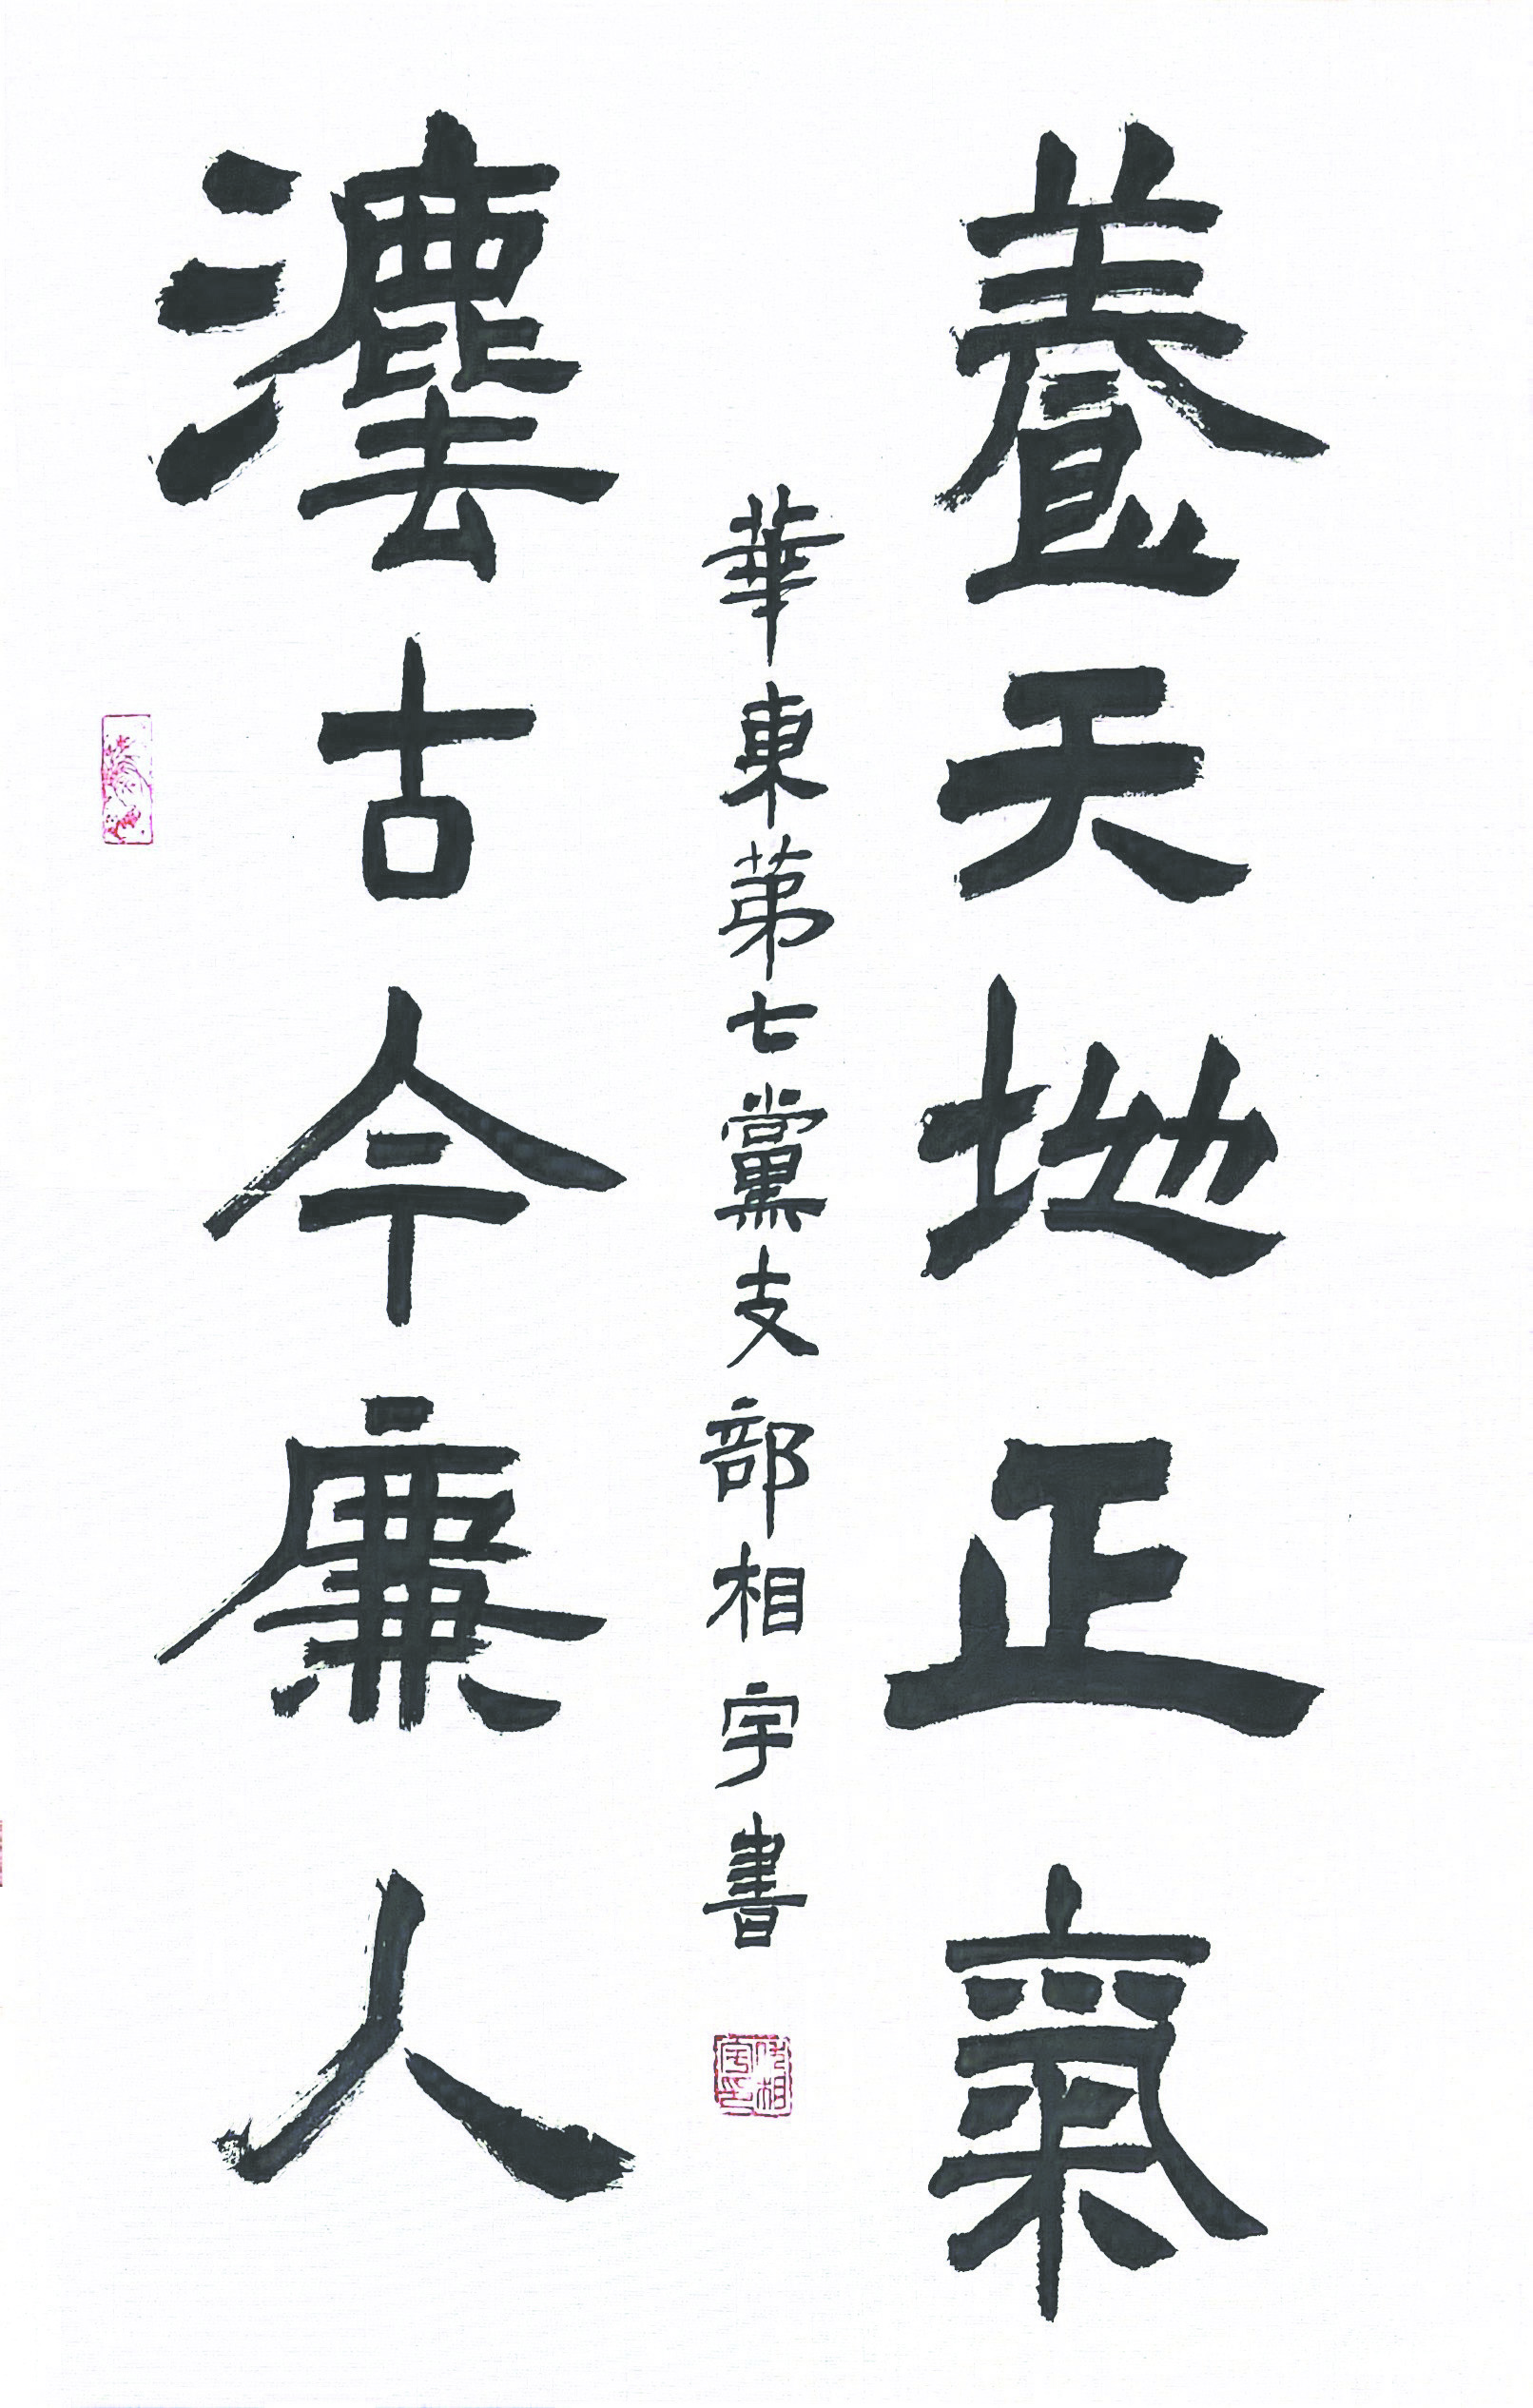 養天地正氣
灋古今廉人
華東第七黨支部相宇書